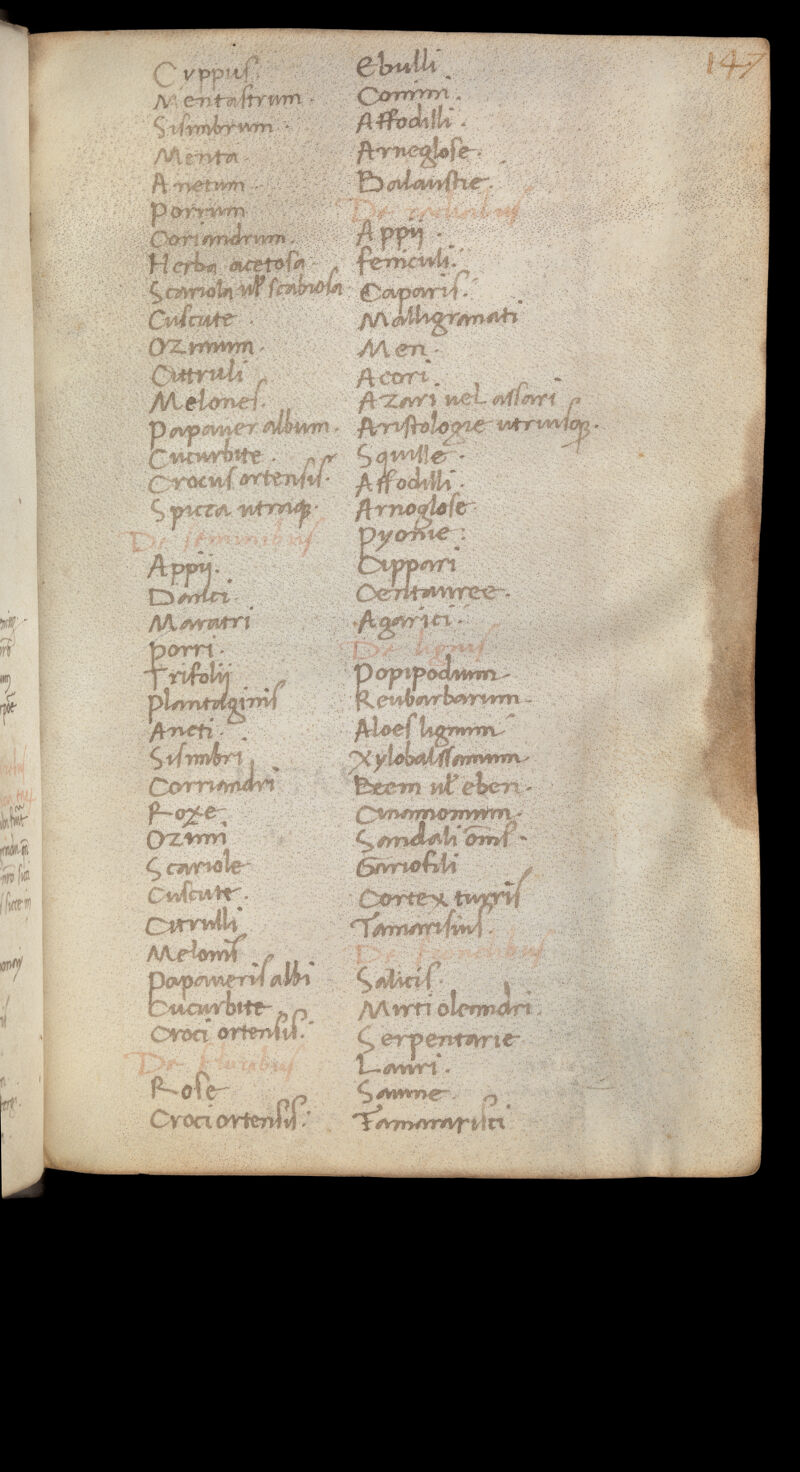 147
Cyppus.
Mentastrum.
Sisimbrum.
Menta
Anetum
Porrum
Coriandrum.
Herba acetosa
Scariola ul' scabiosa
Cuscute
Ozimum.
Citruli
Melones.
Papauer album.
Cucurbite.
Crocus ortensis.
Spicca utraq.
De seminibus
Appij.
Dauci
Maratri
Porri.
Trifolij
Plantaginis
Aneti.
Sisimbri
Corriandri
Roxe
Ozimi
Scariole
Cuscute.
Citrulli
Melonis
Papaueris albi
Cucurbite
Croci ortensis.
De floribus
Rose
Croci ortensis.
Ebulli
Comini.
Affodilli.
Arneglose.
Balaustie.
De radicibus
Appij.
Feniculi.
Caparis.
Malligranati
Meu.
Acori.
Azari uel assari
Aristologie utriusq.
Squille.
Affodilli.
Arnoglose
Pyonie:
Cippari
Centauree.
Agarici.
De lignis
Popipodium
Reubarbarum
Aloes lignum
Xylobalssamum
Been ul' eben.
Cinamomum.
Sandali oms.
Gariofili
Cortex turris
Tamarisius.
De frondibus
Salicis.
Mirti oleandri.
Serpentarie
Lauri.
Sauine.
Tamararisci